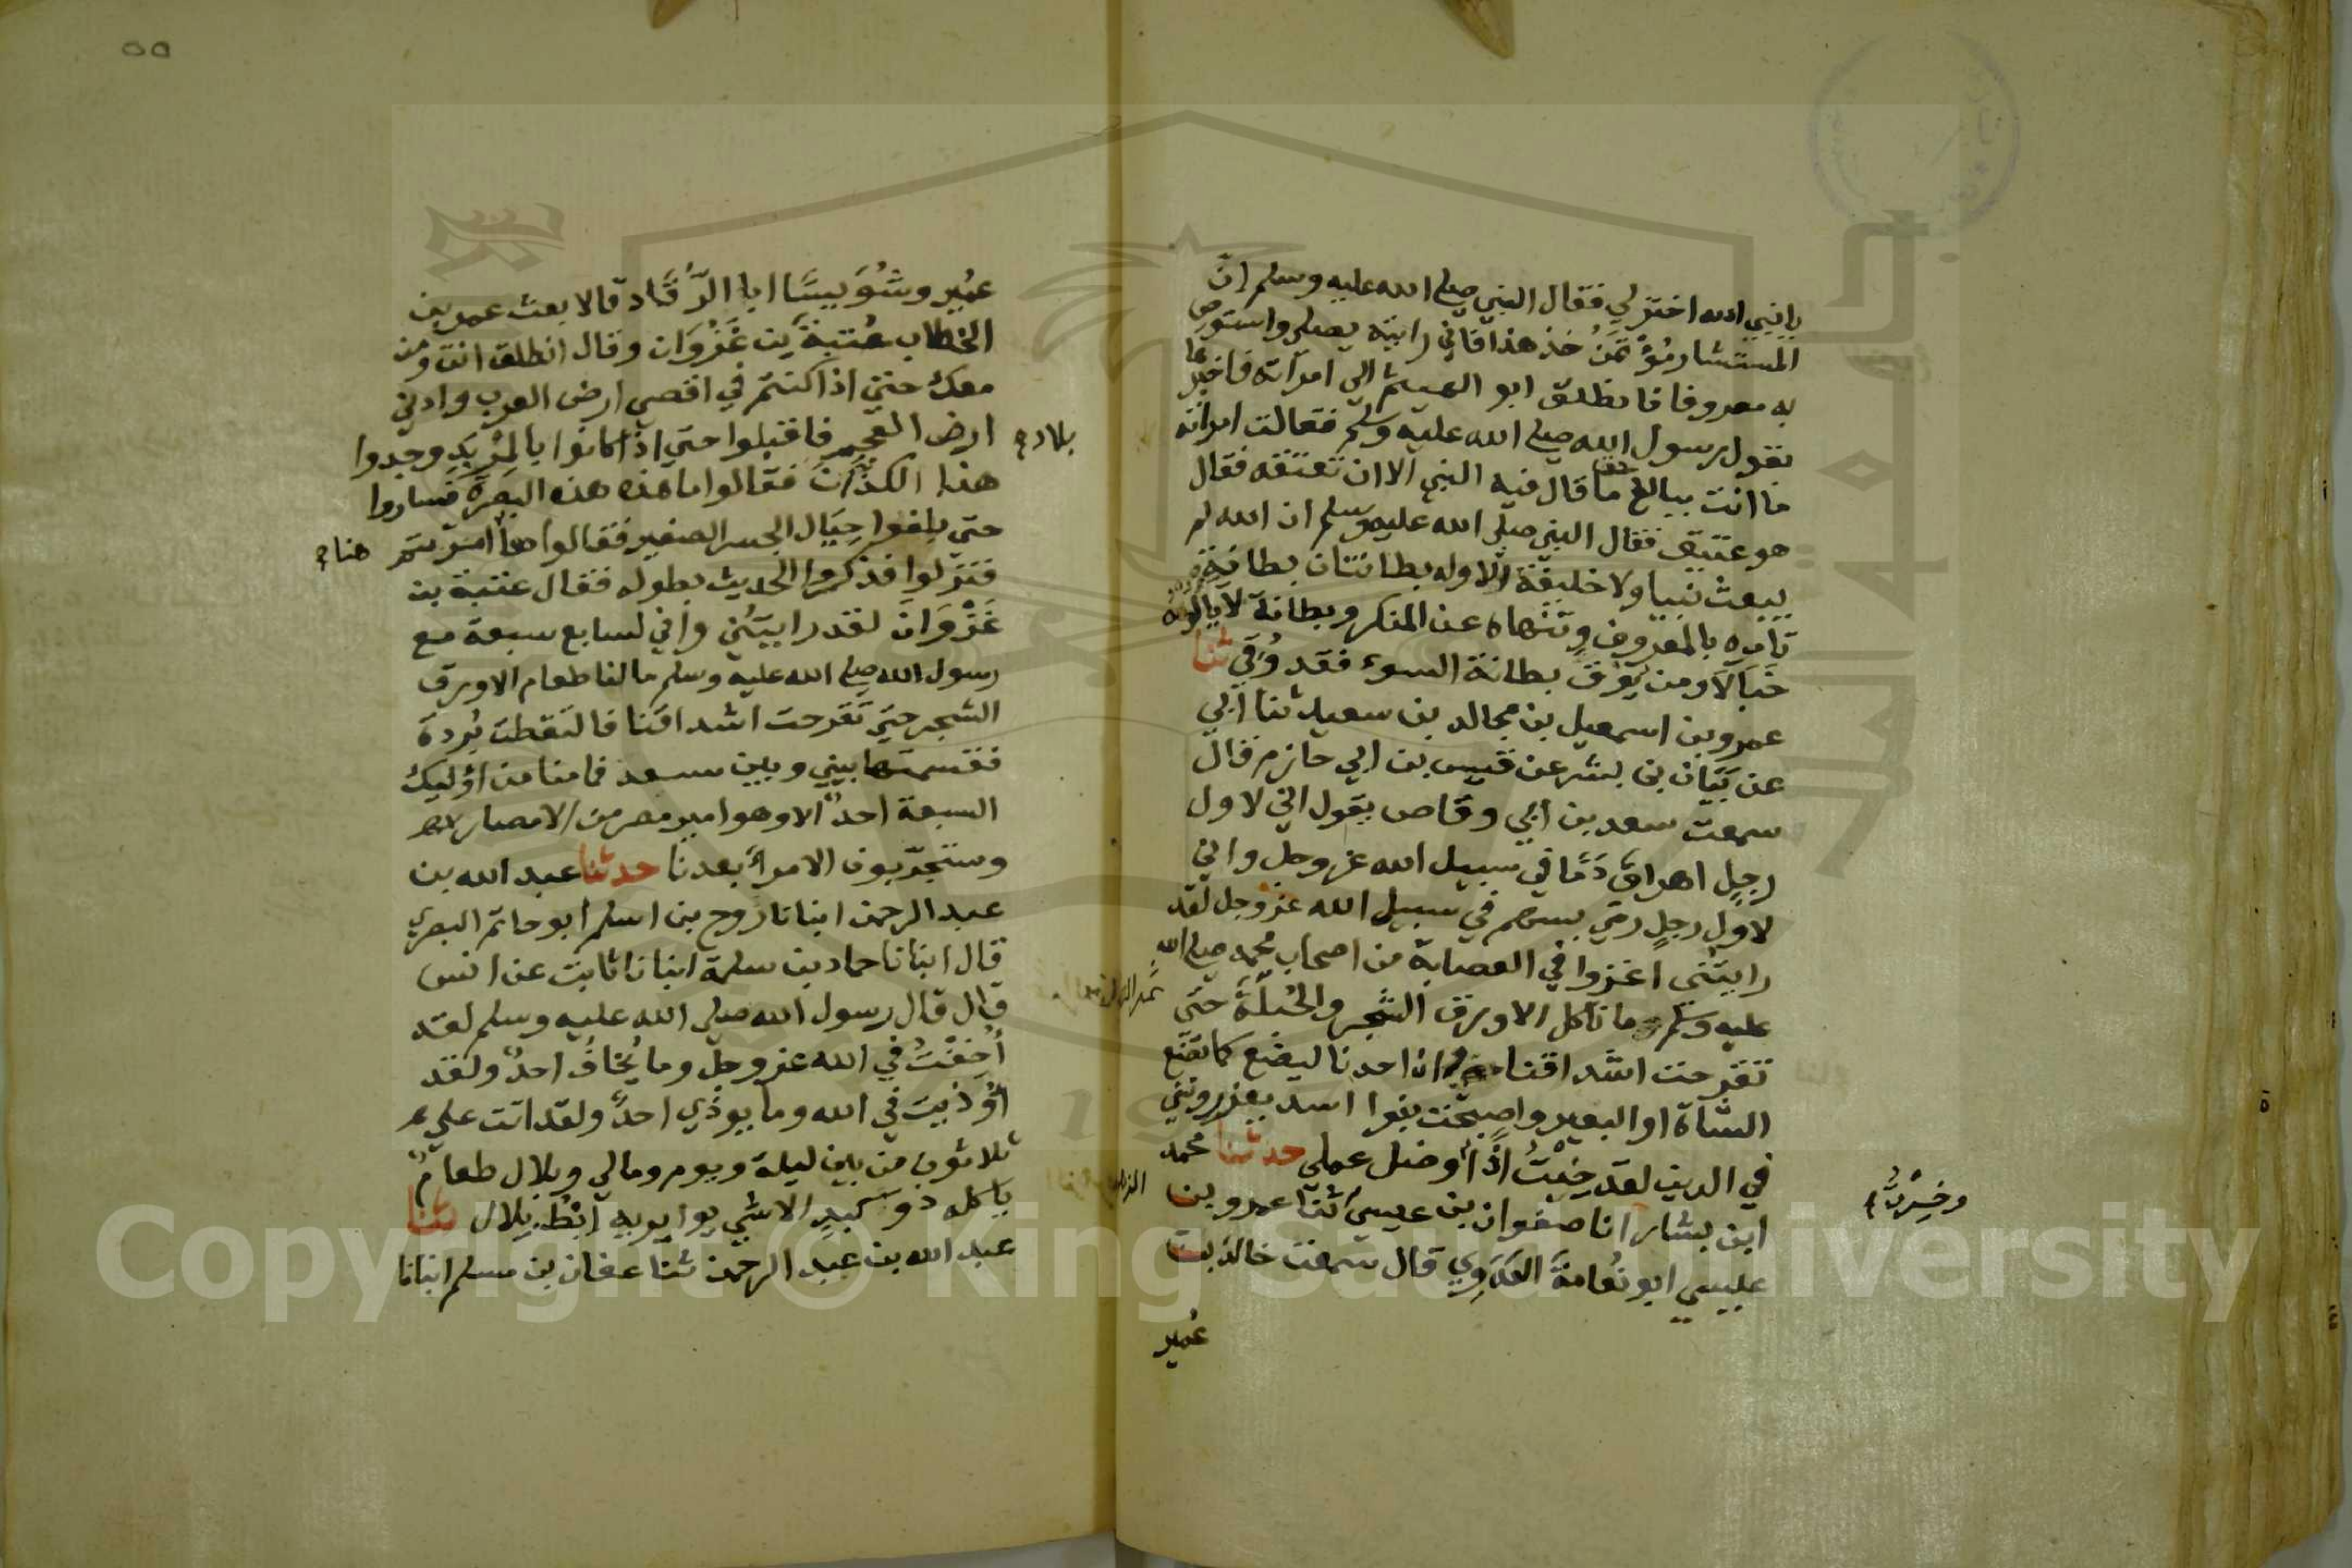 يا نبي الله اختر لي فقال النبي صلى الله عليه وسلم انّ
المستشار مُؤْتَمَنُ خذ هذا فاني رايته يصلي واستوص
به معروفا فانطلق ابو الهيثم الي امرأته فاخبرها
بقول رسول الله صلى الله عليه وسلم فقالت امراته
ما انت ببالغ حق ما قال فيه النبي الا ان تعتقه فقال
هو عتيق فقال النبي صلى الله عليه وسلم ان الله لم
يبعث نبيا ولا خليفة الا وله بطانتان بطانة
تامره بالمعروف وتنهاه عن المنكر وبطانة لا يالوه
خَبَالًا ومن يُوْقَ بطانة السوء فقد وُقِيَ ثنا
عمرو بن اسمعيل بن مجالد بن سعيد ثنا ابي
عن بَيَان بن بشر عن قيس بن ابي حازم قال
سمعت سعد بن ابي وقاص يقول اني لاول
رجلٍ اهراق دَمًا في سبيل الله عز وجل واني
لاول رجلٍ رمَي بسهم في سبيل الله عز وجل لقد
رايتُنى اغزوا في العصابة من اصحاب محمد صلى الله
عليه وسلم ما ناكل الا ورق الشجر والحُبلَةَ حتى
تقرحت اشداقنا وان احدنا ليضع كما تضع
الشاة او البعير واصبحت بنوا اسد يعزرونني
في الدين لقد خِبْتُ اذًا وضل عملي حدثنا محمد
وخسِرْتُ
ابن بشار انا صفوان بن عيسي ثنا عمرو بن
عيسي ابو نُعامةَ العَدَوِي قال سمعت خالد بن
عُمير
عُمَيرٍ وشُوَيسًا ابا الرُّقَاد قالا بعث عمر بن
الخطاب عُتبةَ بن غَزْوَان وقال انطلق انت ومن
معك حتى اذا كنتم في اقصي ارض العرب وادني
بلاد
ارض العجم فاقبلوا حتي اذا كانوا بالمِرْبَدِ وجدوا
هذا الكَذَّانَ فقالوا ما هذه هذه البصرة فساروا
حتي بلغوا حِيَال الجسر الصغير فقالوا هنا امرتم
هنا
فنزلوا فذكروا الحديث بطوله فقال عتبة بن
غَزْوَانَ لقد رايتُنِي واني لسابع سبعة مع
رسول الله صلى الله عليه وسلم ما لنا طعام الا ورق
الشجر حتي تَقَرحتَ اشداقنا فالتقطت بُردةً
فقسمتها بيني وبين سعد فما منا من اؤليك
السبعة احدٌ الا وهو امير مصر من الامصار
وستجرّبون الامراءَ بعدنا حدثنا عبد الله بن
عبد الرحمن انبانا روح بن اسلم ابو حاتم البصري
قال انبانا حماد بن سلمة انبانا ثابت عن انس
قال قال رسول الله صلى الله عليه وسلم لقد
أُخِفْتُ في الله عز وجلّ وما يُخافُ احدٌ ولقد
أُوْذيت في الله وما يوذي احدٌ ولقد اتت علي
ثلاثون من بين ليلة ويوم ومالي وبلال طعامٌ
ياكله ذو كبدٍ الا شي يواريه اِبْطُ بلال ثنا
عبد الله بن عبد الرحمن ثنا عفان بن مسلم انبانا
Copyright © King Saud University